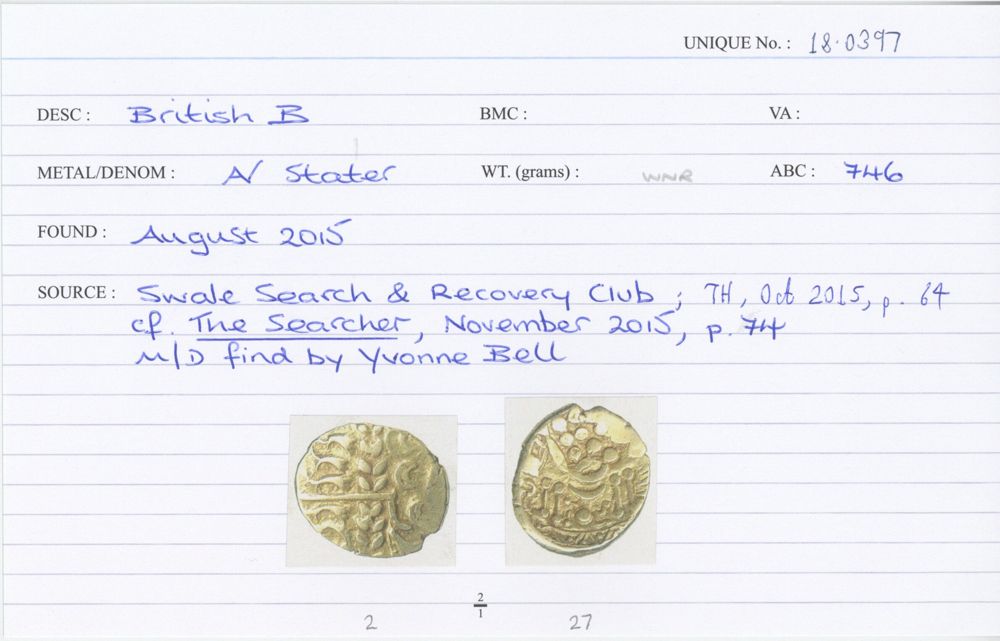 UNIQUE No. : 18.0397
DESC : British B BMC : VA :
METAL/DENOM : A/ Stater WT. (grams) : WNR ABC : 746
FOUND : August 2015
SOURCE : Swale Search & Recovery Club ; TH, Oct 2015, p. 64
cf. The Searcher, November 2015, p. 74
M/D find by Yvonne Bell
2/1
2 27